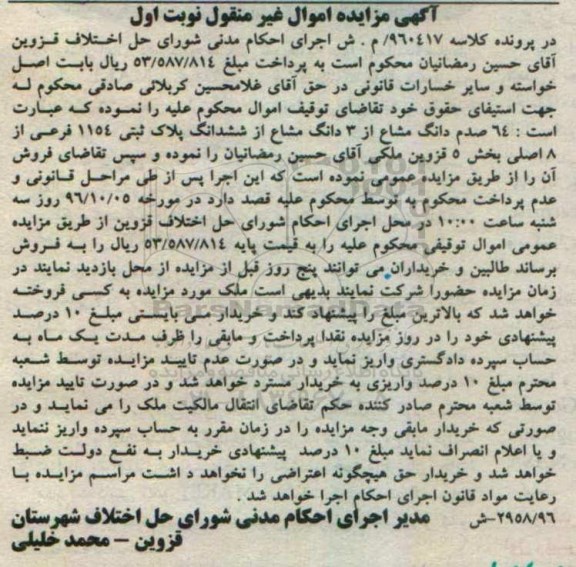 آگهی مزایده اموال غیر منقول نوبت اول
در پرونده کلاسه ۹۶۰٤۱۷/ م . ش اجرای احکام مدنی شورای حل اختلاف قزوین
آقای حسین رمضانیان محکوم است به پرداخت مبلغ ۵۳/۵۸۷/۸۱٤ ریال بابت اصل
خواسته و سایر خسارات قانونی در حق آقای غلامحسین کربلائی صادقی محکوم له
جهت استیفای حقوق خود تقاضای توقیف اموال محکوم علیه را نموده که عبارت
است : ٦٤ صدم دانگ مشاع از ۳ دانگ مشاع از ششدانگ پلاک ثبتی ۱۱٥٤ فرعی از
۸ اصلی بخش ٥ قزوین ملکی آقای حسین رمضانیان را نموده و سپس تقاضای فروش
آن را از طریق مزایده عمومی نموده است که این اجرا پس از طی مراحل قانونی و
عدم پرداخت محکوم به توسط محکوم علیه قصد دارد در مورخه ۹٦/۱۰/۰٥ روز سه
شنبه ساعت ۱۰:۰۰ در محل اجرای احکام شورای حل اختلاف قزوین از طریق مزایده
عمومی اموال توقیفی محکوم علیه را به قیمت پایه ۵۳/۵۸۷/۸۱٤ ریال را به فروش
برساند طالبین و خریداران می توانند پنج روز قبل از مزایده از محل بازدید نمایند در
زمان مزایده حضورا شرکت نمایند بدیهی است ملک مورد مزایده به کسی فروخته
خواهد شد که بالاترین مبلغ را پیشنهاد کند و خریدار می بایستی مبلغ ۱۰ درصد
پیشنهادی خود را در روز مزایده نقدا پرداخت و مابقی را ظرف مدت یک ماه به
حساب سپرده دادگستری واریز نماید و در صورت عدم تایید مزایده توسط شعبه
محترم مبلغ ۱۰ درصد واریزی به خریدار مسترد خواهد شد و در صورت تایید مزایده
توسط شعبه محترم صادر کننده حکم تقاضای انتقال مالکیت ملک را می نماید و در
صورتی که خریدار مابقی وجه مزایده را در زمان مقرر به حساب سپرده واریز ننماید
و یا اعلام انصراف نماید مبلغ ۱۰ درصد پیشنهادی خریدار به نفع دولت ضبط
خواهد شد و خریدار حق هیچگونه اعتراضی را نخواهد د اشت مراسم مزایده با
رعایت مواد قانون اجرای احکام اجرا خواهد شد .
۲۹٥۸/۹٦–ش مدیر اجرای احکام مدنی شورای حل اختلاف شهرستان
قزوین – محمد خلیلی